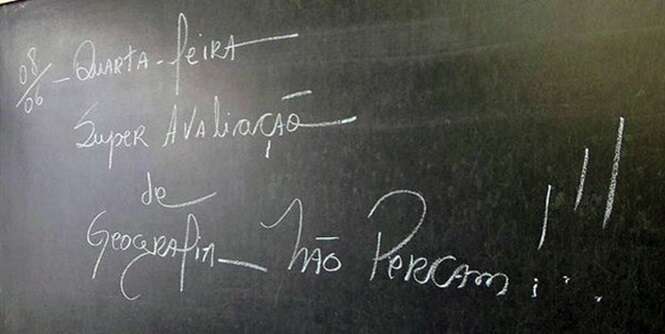 08/06 - Quarta-feira
Super Avaliação
de
Geografia - Não Percam!...!!!